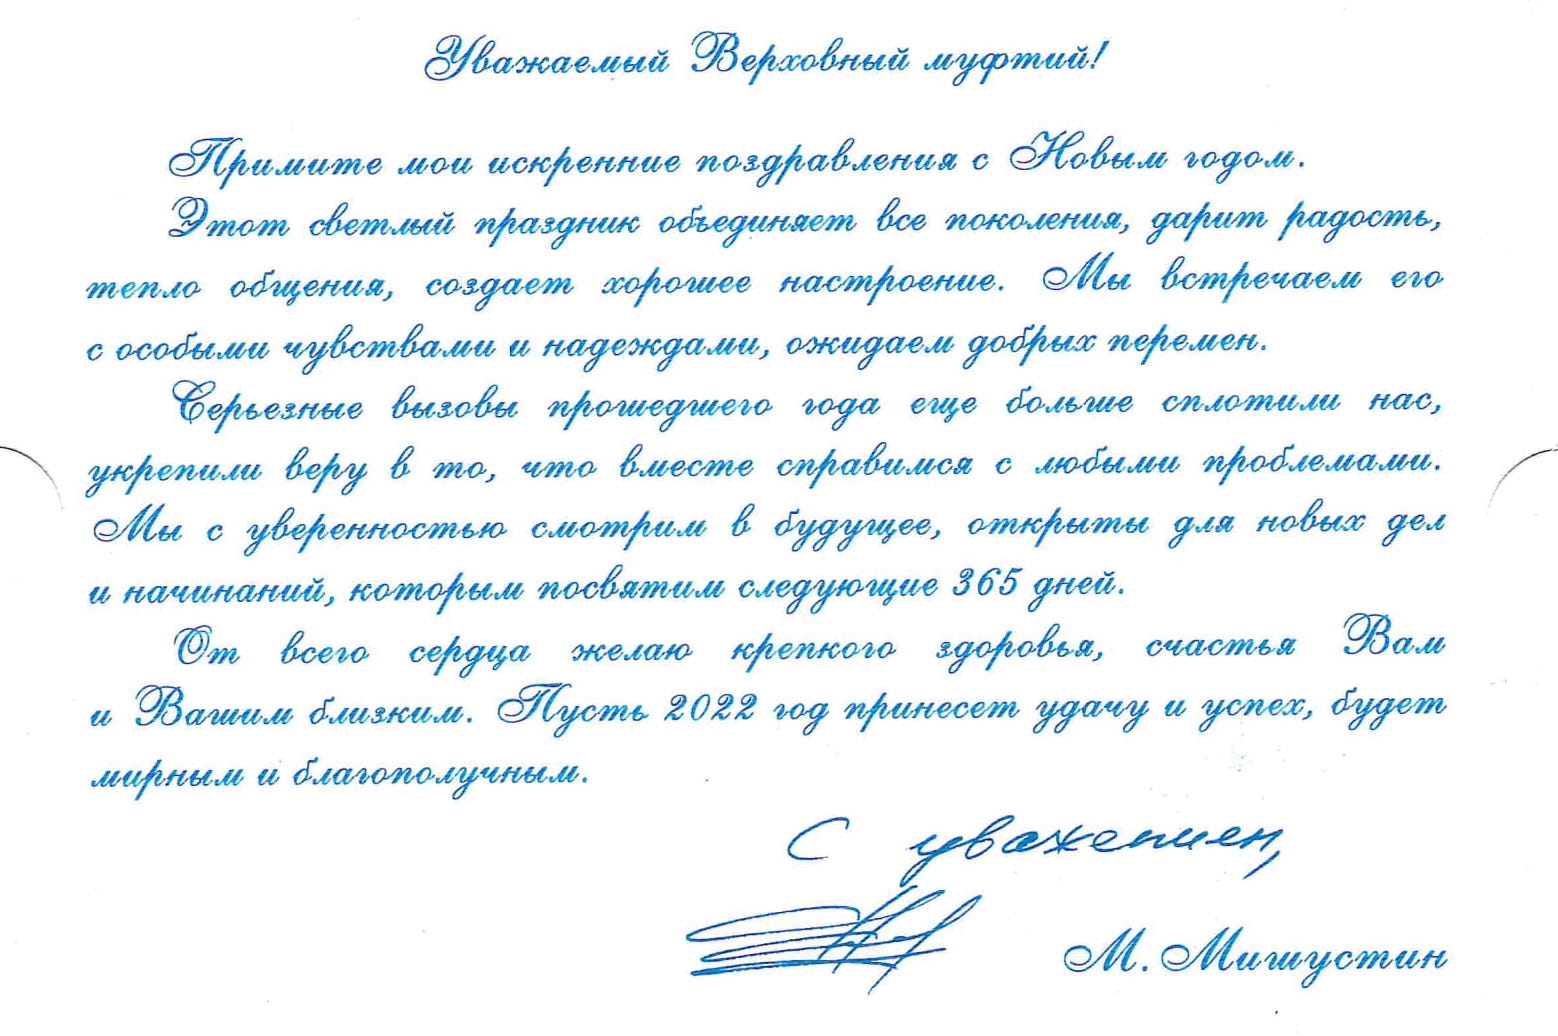 Уважаемый Верховный муфтий!
Примите мои искренние поздравления с Новым годом.
Этот светлый праздник объединяет все поколения, дарит радость,
тепло общения, создает хорошее настроение. Мы встречаем его
с особыми чувствами и надеждами, ожидаем добрых перемен.
Серьезные вызовы прошедшего года еще больше сплотили нас,
укрепили веру в то, что вместе справимся с любыми проблемами.
Мы с уверенностью смотрим в будущее, открыты для новых дел
и начинаний, которым посвятим следующие 365 дней.
От всего сердца желаю крепкого здоровья, счастья Вам
и Вашим близким. Пусть 2022 год принесет удачу и успех, будет
мирным и благополучным.
С уважением,
М. Мишустин